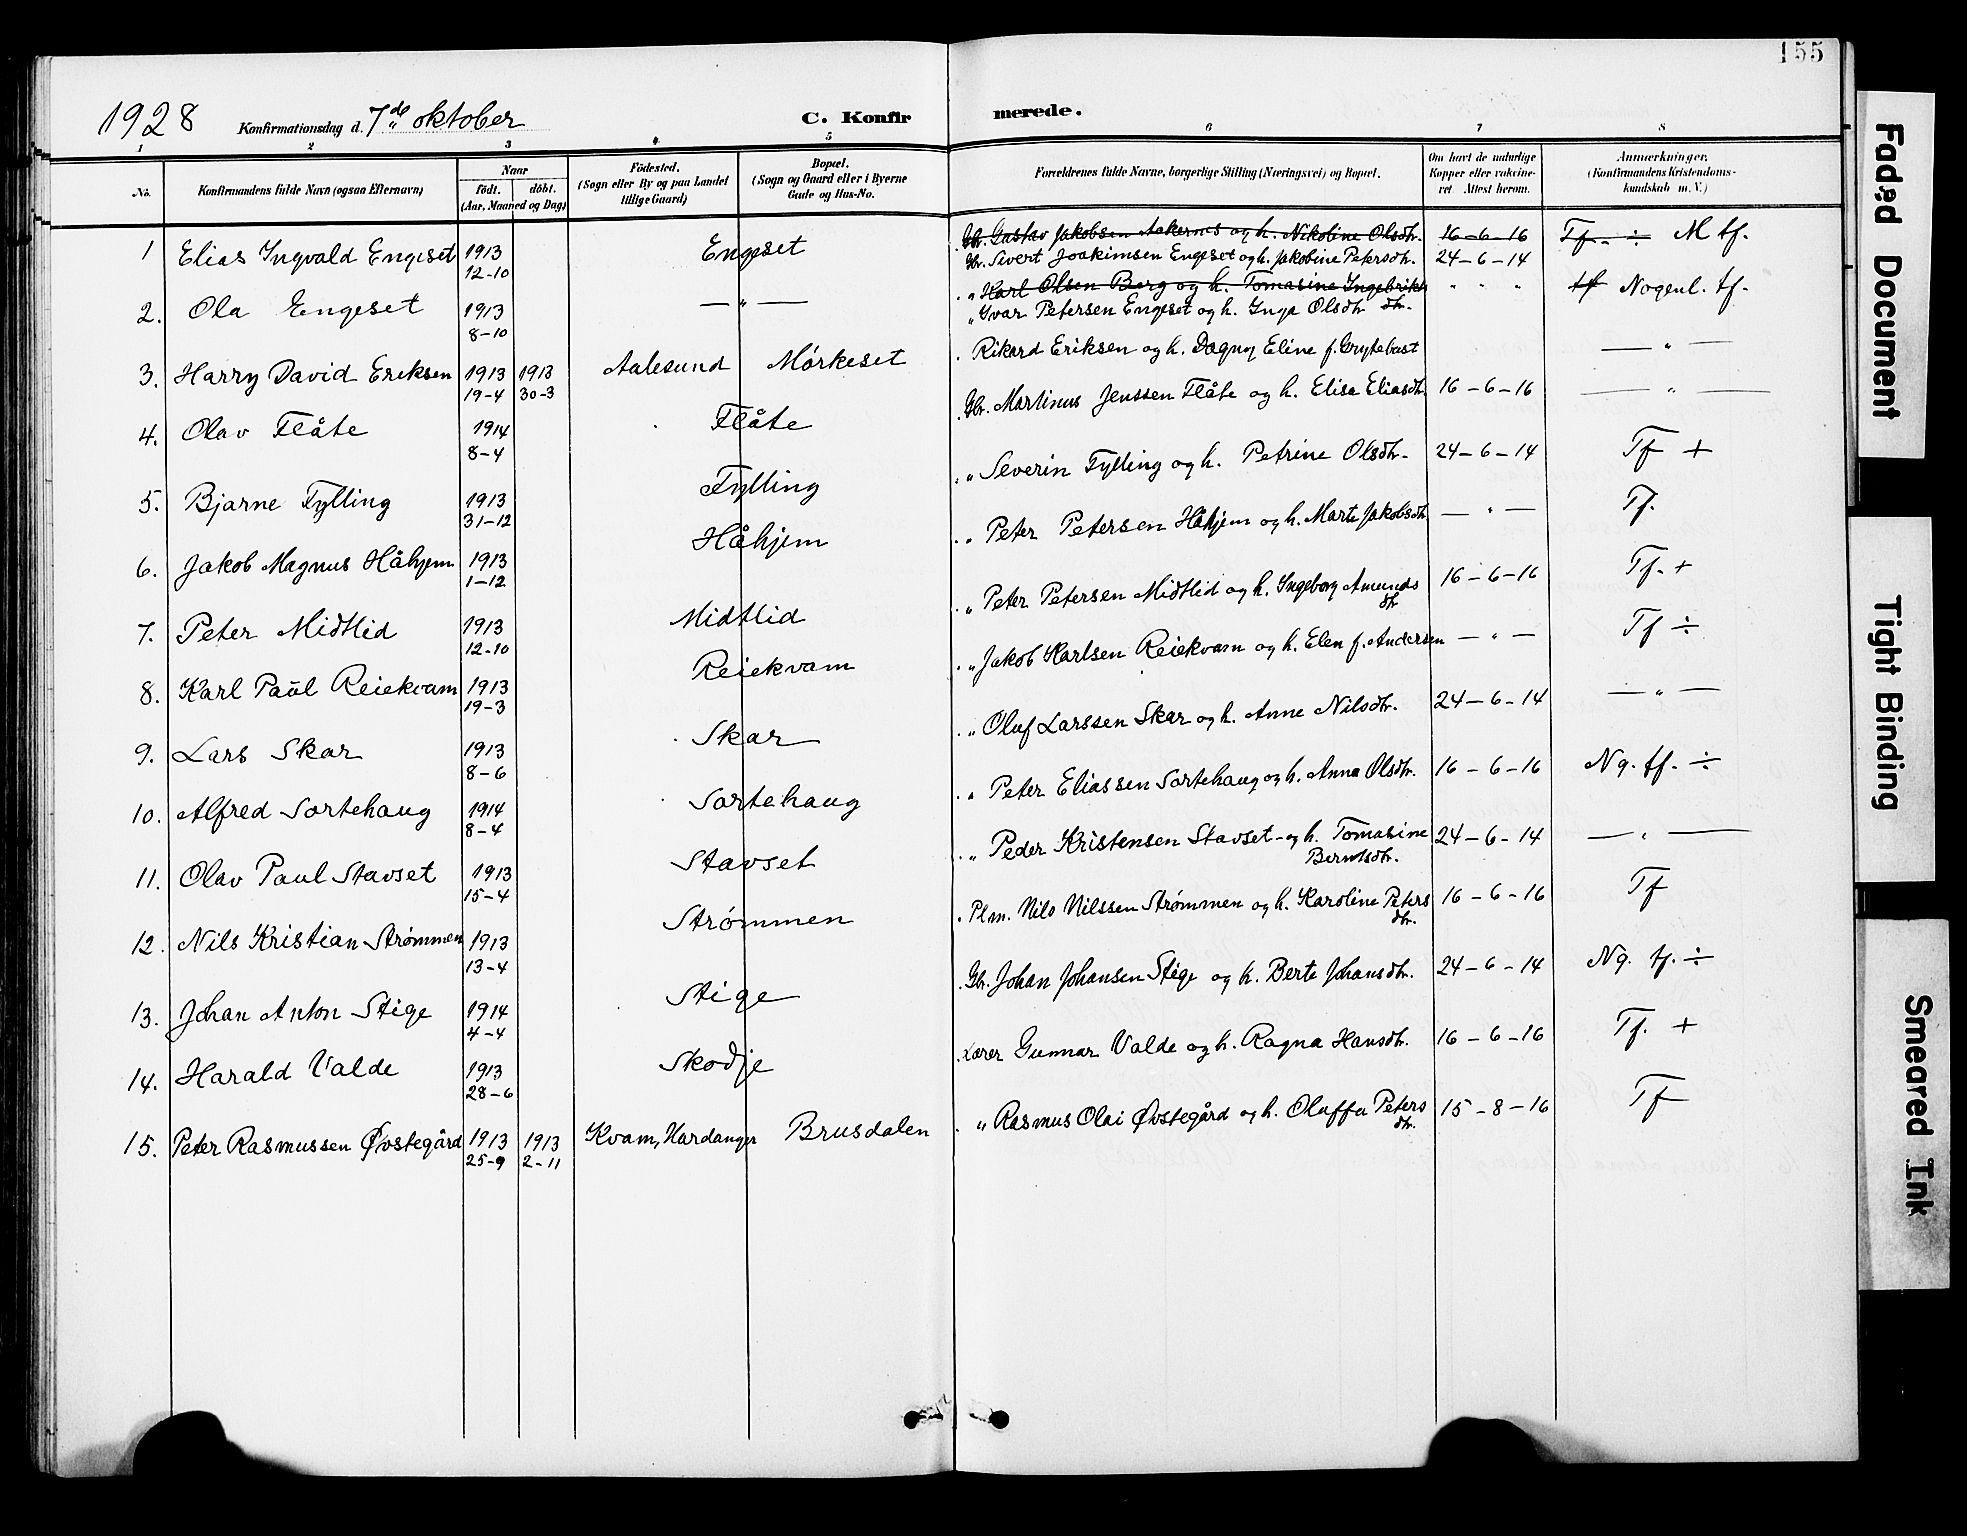 155
1928 Konfirmationsdag d. 7de oktober C. Konfir merede.
1 2 3 4 5 6 7 8
No. Konfirmandens fulde Navn (ogsaa Efternavn) Naar født. døbt. (Aar, Maaned og Dag) Fødested. (Sogn eller By og paa Landet tillige Gaard) Bopæl. (Sogn og Gaard eller i Byerne Gade og Hus-No.) Forældrenes fulde Navne, borgerlige Stilling (Næringsvei) og Bopæl. Om havt de naturlige Kopper eller vakcineret Attest herom. Anmærkninger. (Konfirmandens Kristendomskundskab m. V.)
Gbr. Gustav Jakobsen Aakernes og h. Nikoline Olsdtr. 16-6-16 Tf. ÷ M tf.
1 Elias Ingvald Engeset 1913 12-10 Engeset Gbr. Sivert Joakimsen Engeset og h. Jakobine Petersdtr. 24-6-14
" Karl Olsen Berg og h. Tomasine Ingebrikts dtr. " " " tf Nogenl. tf.
2. Ola Engeset 1913 8-10 — " — " Ivar Petersen Engeset og h. Inga Olsdtr
3. Harry David Eriksen 1913 19-4 1913 30-3 Aalesund Mørkeset Rikard Eriksen og h. Dagny Eline f. Grytebust — " —
4. Olav Flåte 1914 8-4 Flåte Gbr. Martinus Jenssen Flåte og h. Elisa Eliasdtr. 16-6-16 — " —
5. Bjarne Fylling 1913 31-12 Fylling " Severin Fylling og h. Petrine Olsdtr. 24-6-14 Tf +
6. Jakob Magnus Håhjem 1913 1-12 Håhjem " Peter Petersen Håhjem og h. Marte Jakobsdtr — " — Tf.
7. Peter Midtlid 1913 12-10 Midtlid " Peter Petersen Midtlid og h. Ingeborg Amunds dtr 16-6-16 Tf. +
8. Karl Paul Reiekvam 1913 19-3 Reiekvam " Jakob Karlsen Reiekvam og h. Elen f. Andersen — " — Tf ÷
9. Lars Skar 1913 8-6 Skar " Oluf Larssen Skar og h. Anne Nilsdtr. 24-6-14 — " —
10. Alfred Sortehaug 1914 8-4 Sortehaug " Peter Eliassen Sortehaug og h. Anna Olsdtr. 16-6-16 Ng. tf. ÷
11. Olav Paul Stavset 1913 15-4 Stavset " Peder Kristensen Stavset og h. Tomasine Berntsdtr. 24-6-14 — " —
12. Nils Kristian Strømmen 1913 13-4 Strømmen Plm. Nils Nilssen Strømmen og h. Karoline Peters dtr. 16-6-16 Tf
13. Johan Anton Stige 1914 4-4 Stige Gbr. Johan Johansen Stige og h. Berte Johansdtr. 24-6-14 Ng. tf. ÷
14. Harald Valde 1913 28-6 Skodje Lærer Gunnar Valde og h. Ragna Hansdtr. 16-6-16 Tf. +
15. Peter Rasmussen Øvstegård 1913 25-9 1913 2-11 Kvam, Hardanger Brusdalen " Rasmus Olai Øvstegård og h. Oluffa Peters dtr. 15-8-16 Tf
Faded Document
Tight Binding
Smeared Ink